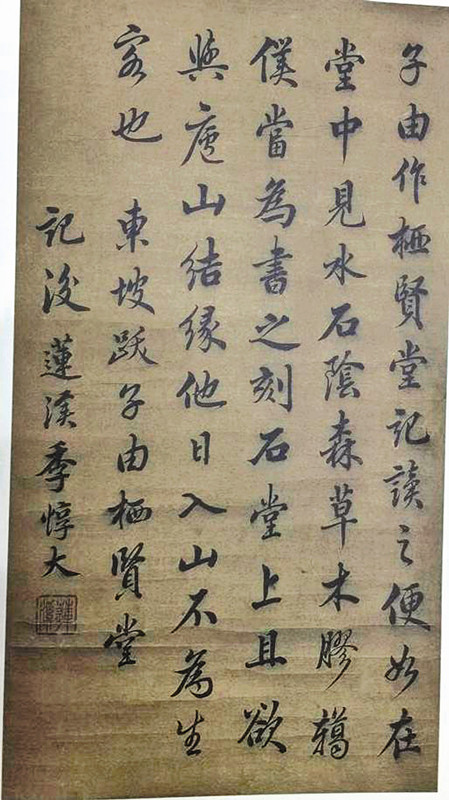 子由作栖賢堂記讀之便如在
堂中見水石陰森草木膠
僕當為書之刻石堂上且欲
與廬山結緣他日入山不為生
客也 東坡跋子由栖賢堂
記後 蓮溪季惇大